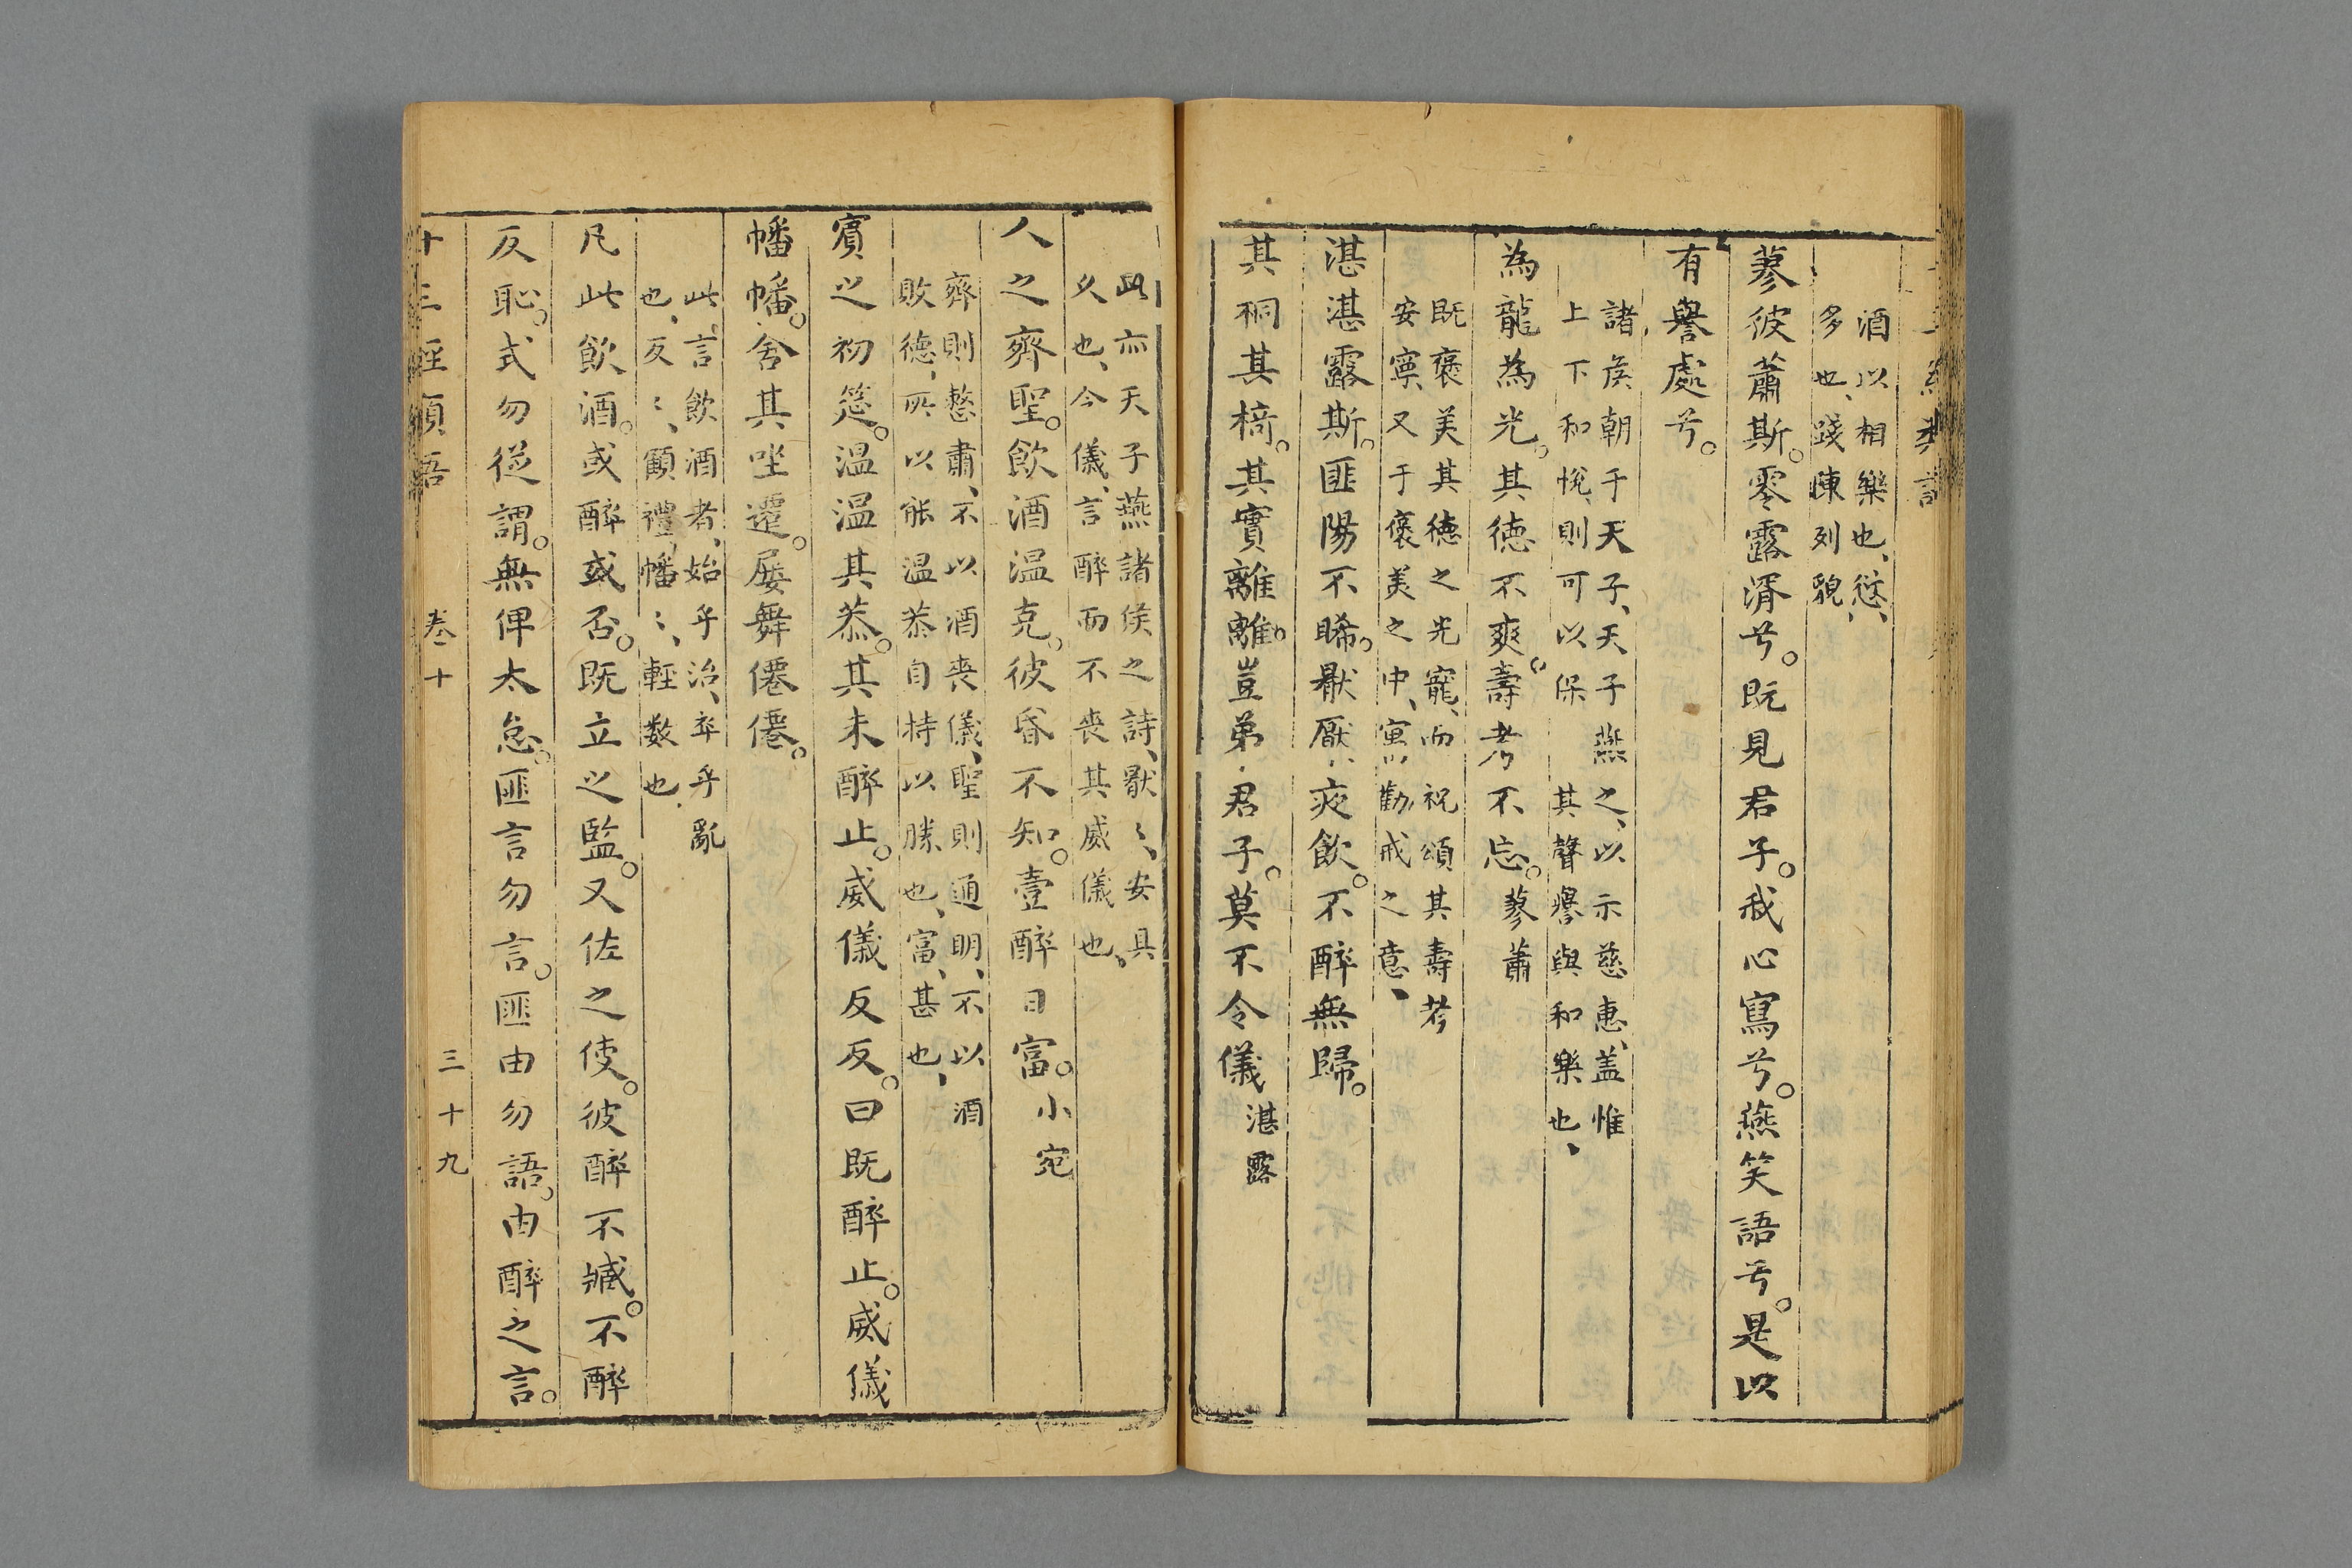 酒以相樂也、愆、
多也、踐陳列貌、
蓼彼蕭斯。零露湑兮。既見君子。我心寫兮。燕笑語兮。是以
有譽處兮。
諸侯朝于天子、天子燕之、以示慈惠、盖惟
上下和悅、則可以保其聲譽與和樂也、
為龍為光。其德不爽。壽考不忘。蓼蕭
既褒美其德之光寵、而祝頌其壽考
安寧、又于褒美之中、寓勸戒之意、
湛湛露斯。匪陽不晞。厭厭夜飲。不醉無歸。
其桐其椅。其實離離。豈弟君子。莫不令儀 湛露
此亦天子燕諸侯之詩、厭〻、安具
久也、今儀、言醉而不喪其威儀也、
人之齊聖。飲酒温克。彼昏不知。壹醉日富。小宛
齊則整肅、不以酒喪儀、聖則通明、不以酒
敗德、所以能温恭自持以勝也、富、甚也、
賓之初筵。温温其恭。其未醉止。威儀反反。曰既醉止。威儀
幡幡。舍其坐遷。屢舞僊僊。
此言飲酒者、始乎治、卒乎亂
也、反〻、顧禮、幡〻、輕數也、
凡此飲酒。或醉或否。既立之監。又佐之使。彼醉不臧。不醉
反恥。式勿從謂。無俾太怠。匪言勿言。匪由勿語。由醉之言。
十三經類語 卷十 三十九